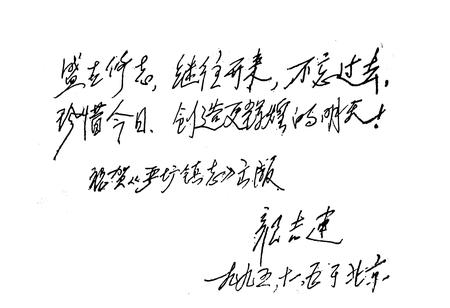 盛世修志，继往开来，不忘过去，
珍惜今日、创造更辉煌的明天！
祝贺《严坊镇志》出版
吉建
一九九五，十一，五于北京